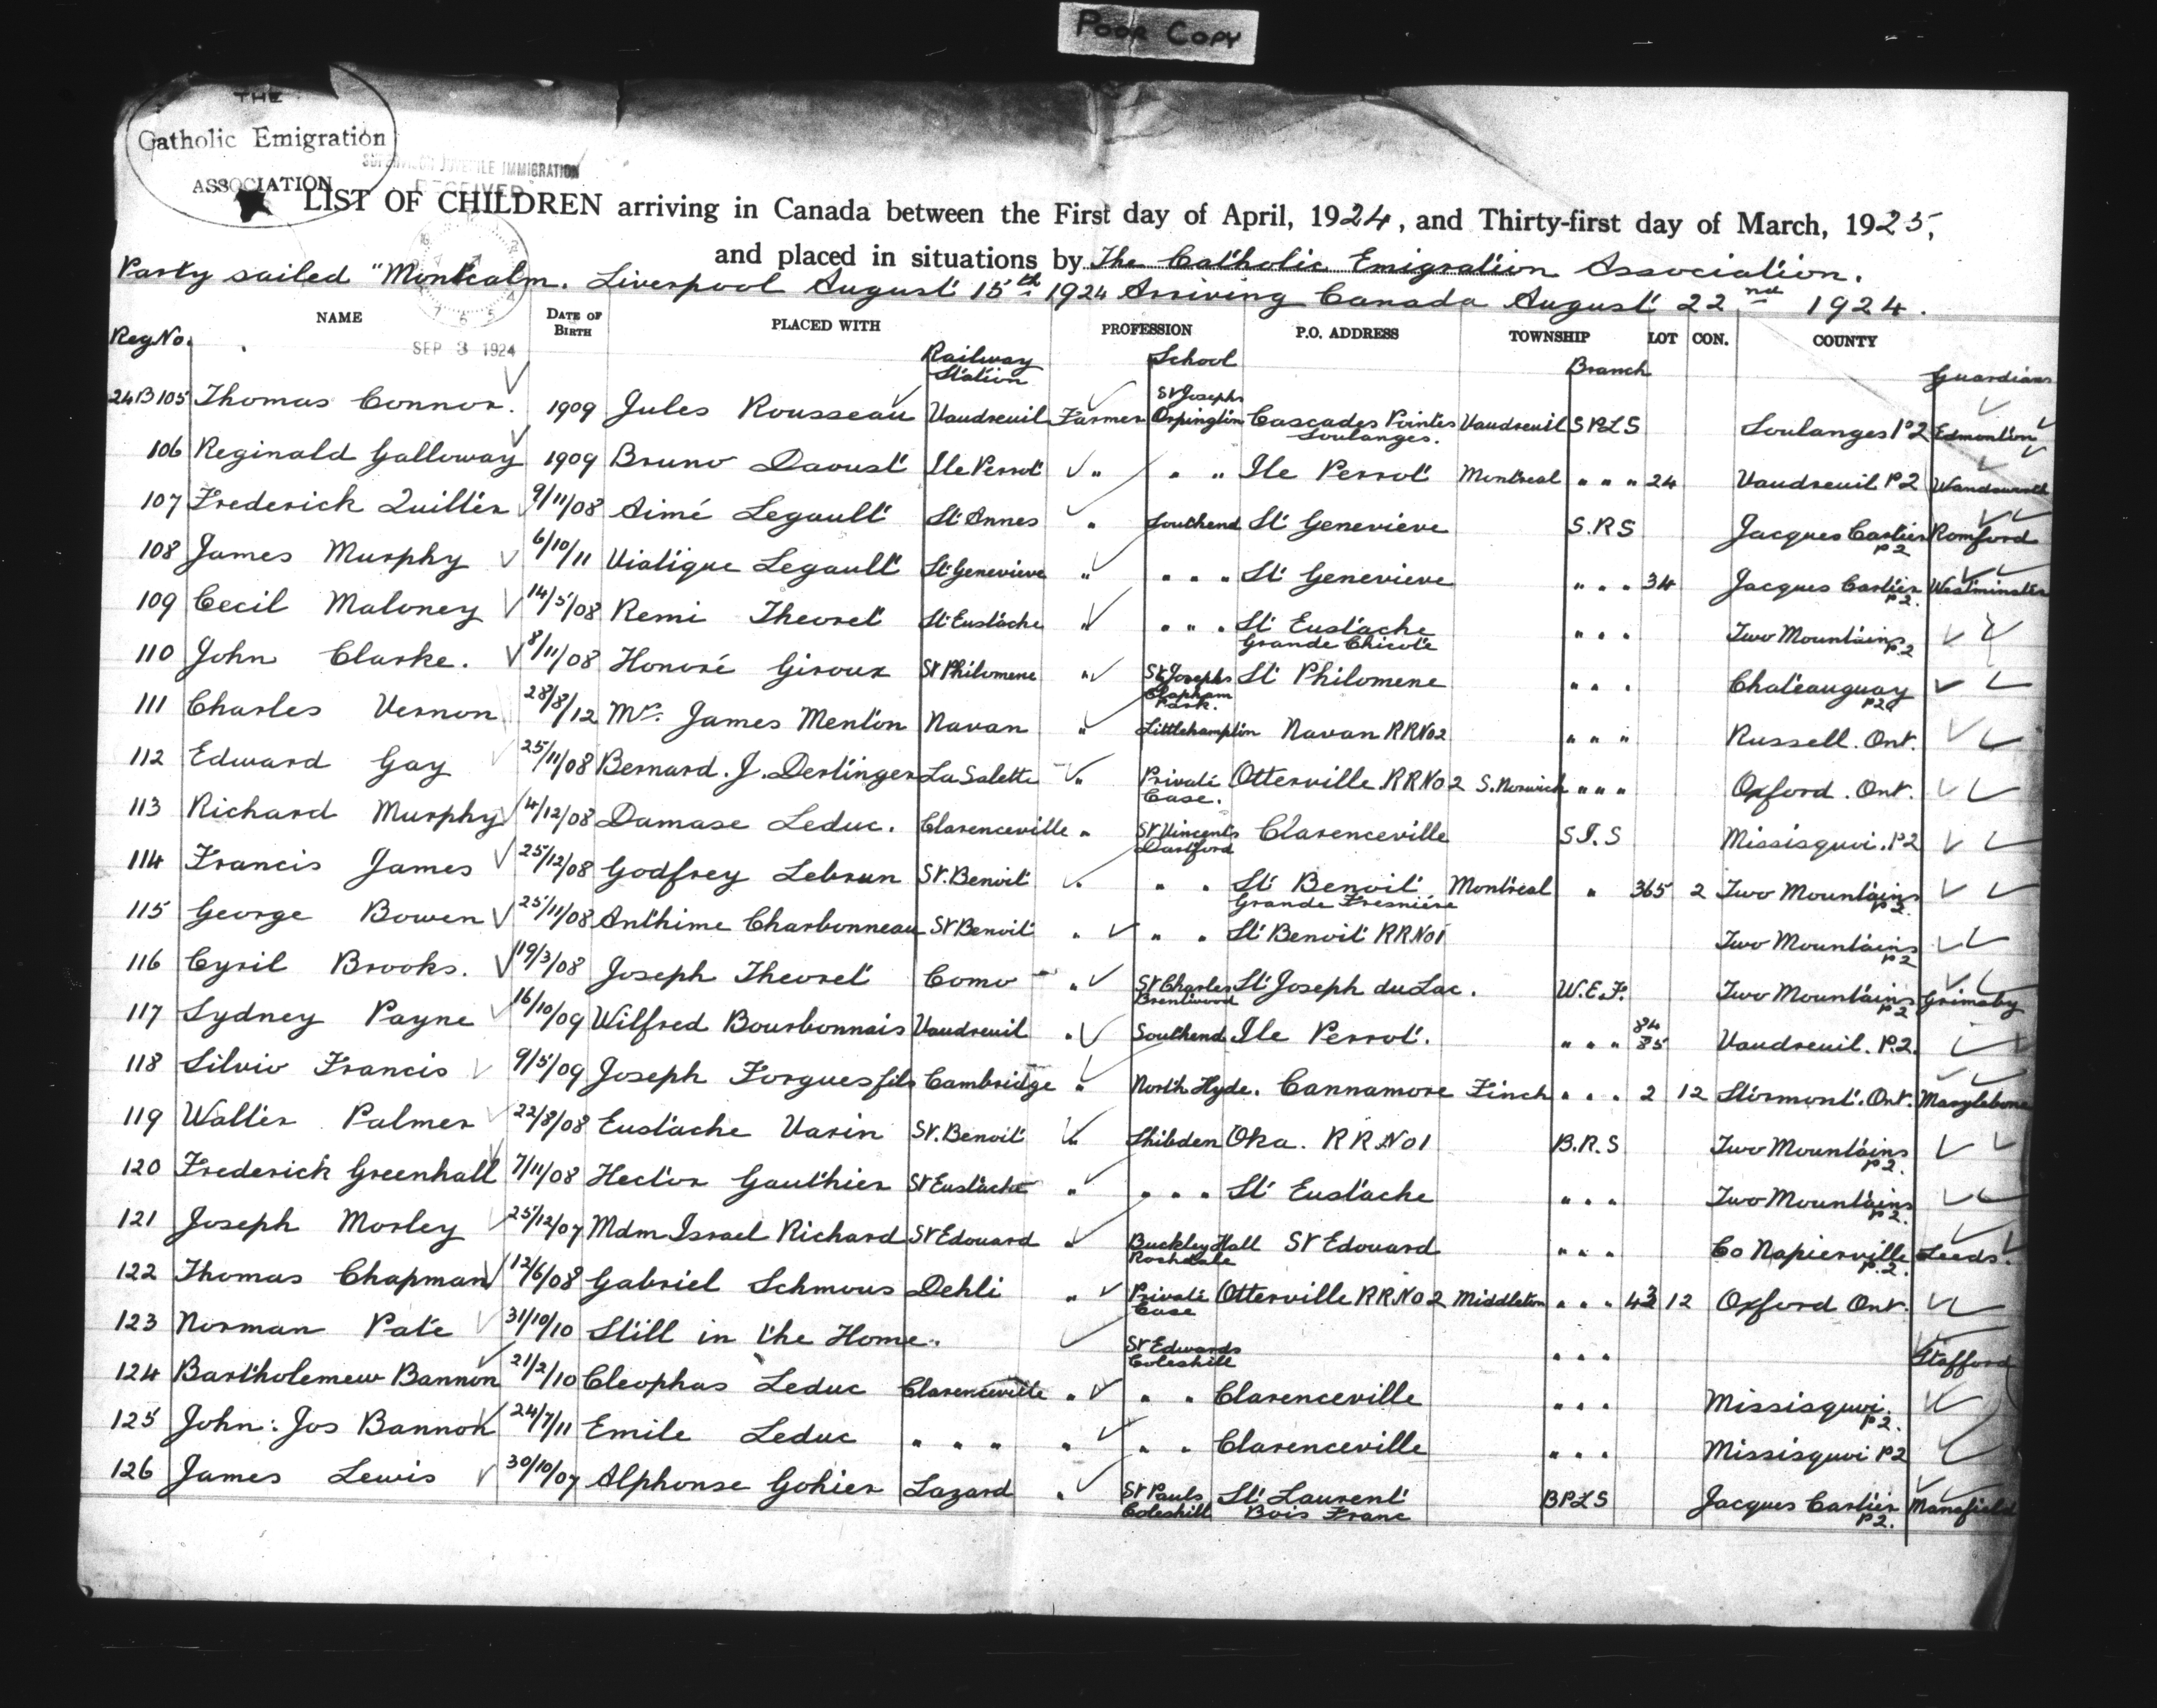 POOR COPY
THE
Catholic Emigration
ASSOCIATION
SUPERVISOR JUVENILE IMMIGRATION
RECEIVED
LIST OF CHILDREN arriving in Canada between the First day of April, 1924, and Thirty-first day of March, 1925,
and placed in situations by The Catholic Emigration Association.
Party sailed "Montcalm. Liverpool August 15th 1924 Arriving Canada August 22nd 1924.
SEP 3 1924
Reg No. NAME DATE OF BIRTH PLACED WITH Railway Station PROFESSION School P.O. ADDRESS TOWNSHIP Branch LOT CON. COUNTY Guardians
24B105 Thomas Connor. 1909 Jules Rousseau Vaudreuil Farmer St Josephs Orpington Cascades Pointes Soulanges. Vaudreuil SPLS Soulanges P2 Edmonton
106 Reginald Galloway 1909 Bruno Daoust Ile Perrot " " " Ile Perrot Montreal " " " 24 Vaudreuil P2 Wandsworth
107 Frederick Quilter 9/11/08 Aimé Legault St Annes " Southend St Genevieve S.R.S Jacques Cartier P2 Romford
108 James Murphy 6/10/11 Viatique Legault St Genevieve " " " " St Genevieve " " " 34 Jacques Cartier P2. Westminster
109 Cecil Maloney 14/5/08 Remi Theoret St Eustache " " " " St Eustache Grande Chicote " " " Two Mountains P2
110 John Clarke. 8/11/08 Honoré Giroux St Philomene " St Josephs Clapham Park. St Philomene " " " Chateauguay P2
111 Charles Vernon 28/8/12 Mr. James Menton Navan " Littlehampton Navan RRNo2 " " " Russell. Ont.
112 Edward Gay 25/11/08 Bernard. J. Dertinger La Salette " Private Case. Otterville RRNo2 S. Norwich " " " Oxford. Ont.
113 Richard Murphy 4/12/08 Damase Leduc. Clarenceville " St Vincents Dartford Clarenceville S.J.S Missisquoi. P2
114 Francis James 25/12/08 Godfrey Lebrun St. Benoit " " " St Benoit Grande Fresniere Montreal " 365 2 Two Mountains P2.
115 George Bowen 25/11/08 Anthime Charbonneau St Benoit " " " St Benoit RRNo1 Two Mountains P2
116 Cyril Brooks. 19/3/08 Joseph Theoret Como " St Charles Brentwood St Joseph du Lac. W.E.F. Two Mountains P2 Grimsby
117 Sydney Payne 16/10/09 Wilfred Bourbonnais Vaudreuil " Southend Ile Perrot. " " " 84 85 Vaudreuil. P.2.
118 Silvio Francis 9/5/09 Joseph Forgues fils Cambridge " North Hyde. Cannamore Finch " " " 2 12 Stormont. Ont. Marylebone
119 Walter Palmer 22/8/08 Eustache Varin St. Benoit " Shibden Oka. RRNo1 B.R.S Two Mountains P2.
120 Frederick Greenhall 7/11/08 Hector Gauthier St Eustache " " " " St Eustache " " " Two Mountains P2.
121 Joseph Morley 25/12/07 Mdm Israel Richard St Edouard " Buckley Hall Rochdale St Edouard " " " Co Napierville P.2. Leeds.
122 Thomas Chapman 12/6/08 Gabriel Schmous Dehli " Private Case Otterville RRNo2 Middleton " " " 43 12 Oxford Ont.
123 Norman Pate 31/10/10 Still in the Home. St Edwards Coleshill " " " Stafford
124 Bartholemew Bannon 21/2/10 Cleophas Leduc Clarenceville " " " Clarenceville " " " Missisquoi. P2.
125 John: Jos Bannon 24/7/11 Emile Leduc " " " " " " Clarenceville " " " Missisquoi P2
126 James Lewis 30/10/07 Alphonse Gohier Lazard " St Pauls Coleshill St Laurent Bois Franc BPLS Jacques Cartier P2. Mansfield